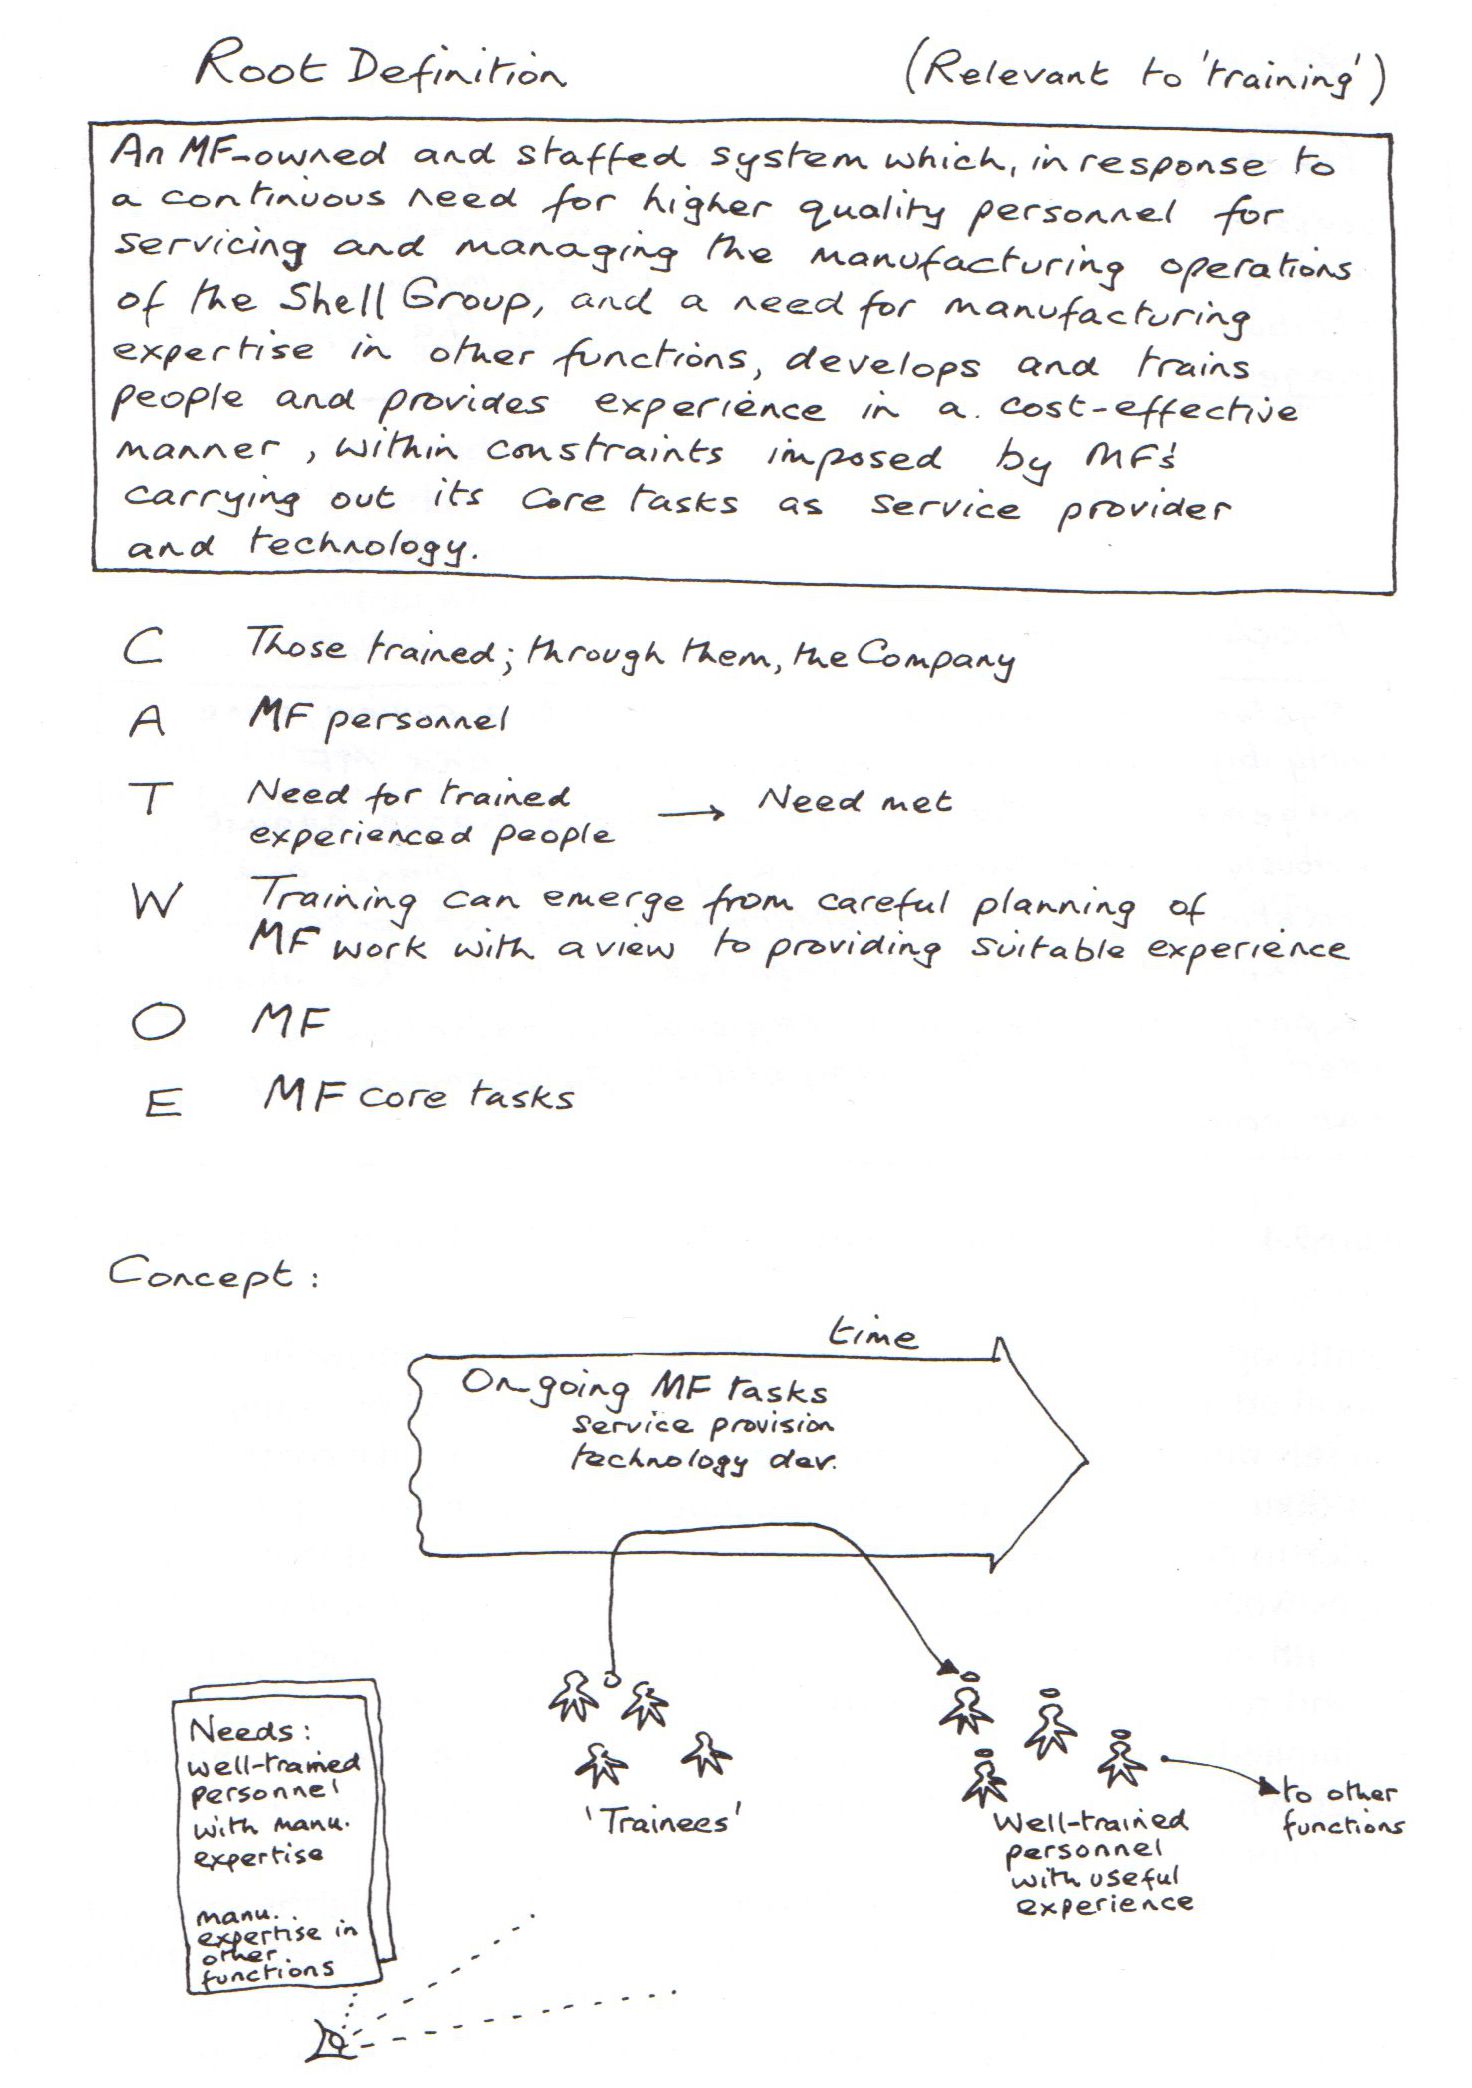 Root Definition (Relevant to 'training')
An MF-owned and staffed system which, in response to
a continuous need for higher quality personnel for
servicing and managing the manufacturing operations
of the Shell Group, and a need for manufacturing
expertise in other functions, develops and trains
people and provides experience in a cost-effective
manner, within constraints imposed by MF's
carrying out its core tasks as service provider
and technology.
C Those trained; through them, the Company
A MF personnel
T Need for trained → Need met
experienced people
W Training can emerge from careful planning of
MF work with a view to providing suitable experience
O MF
E MF core tasks
Concept:
time
On-going MF tasks
service provision
technology dev.
Needs:
well-trained
personnel
with manu.
expertise
manu..
expertise in
other
functions
'Trainees'
Well-trained
personnel
with useful
experience
to other
functions